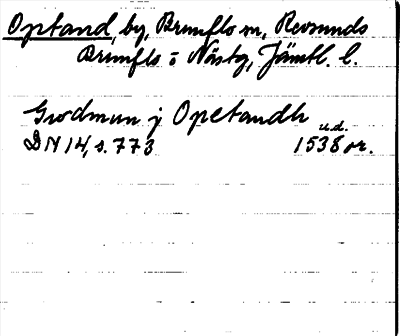 Optand, by, Brunflo sn, Revsunds
Brunflo o Näskn, Jämtl. l.
Gudmun j Opetandh
u.d.
DN 14, s. 773 1538 or.